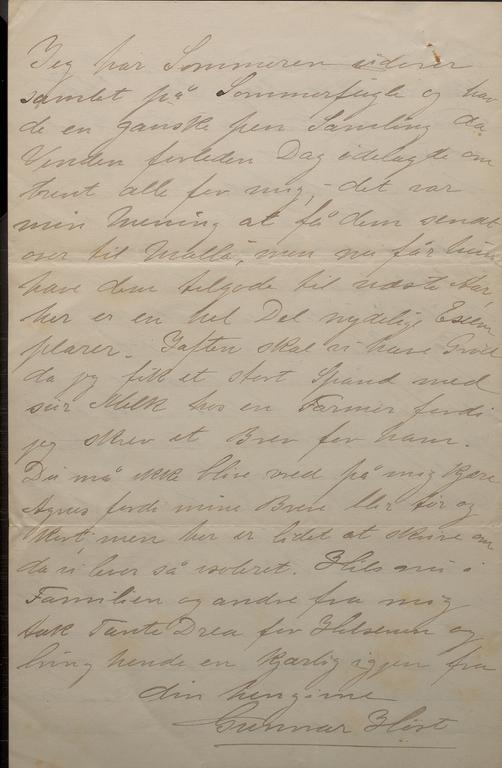 Jeg har Sommeren udover
samlet på Sommerfugle og hav
de en ganske pen Samling da
Vinden forleden Dag ødelagde om
trent alle for mig, - det var
min Mening at få dem sendt
over til Malla, men nu får hun
have dem tilgode til næste Aar
her er en hel Del nydelige Exem
plarer. Iaften skal vi have Gröd
da jeg fik et stort Spand med
sür Melk hos en Farmer fordi
jeg skrev et Brev for ham.
Du må ikke blive vred på mig kjære
Agnes fordi mine Breve blir tør og
kort, men her er lidet at skrive om
da vi lever så isoleret. Hils nu i
Familien og andre fra mig
tak Tante Drea for Hilsenen og
bring hende en kjærlig igjen fra
din hengivne
Gunnar Høst